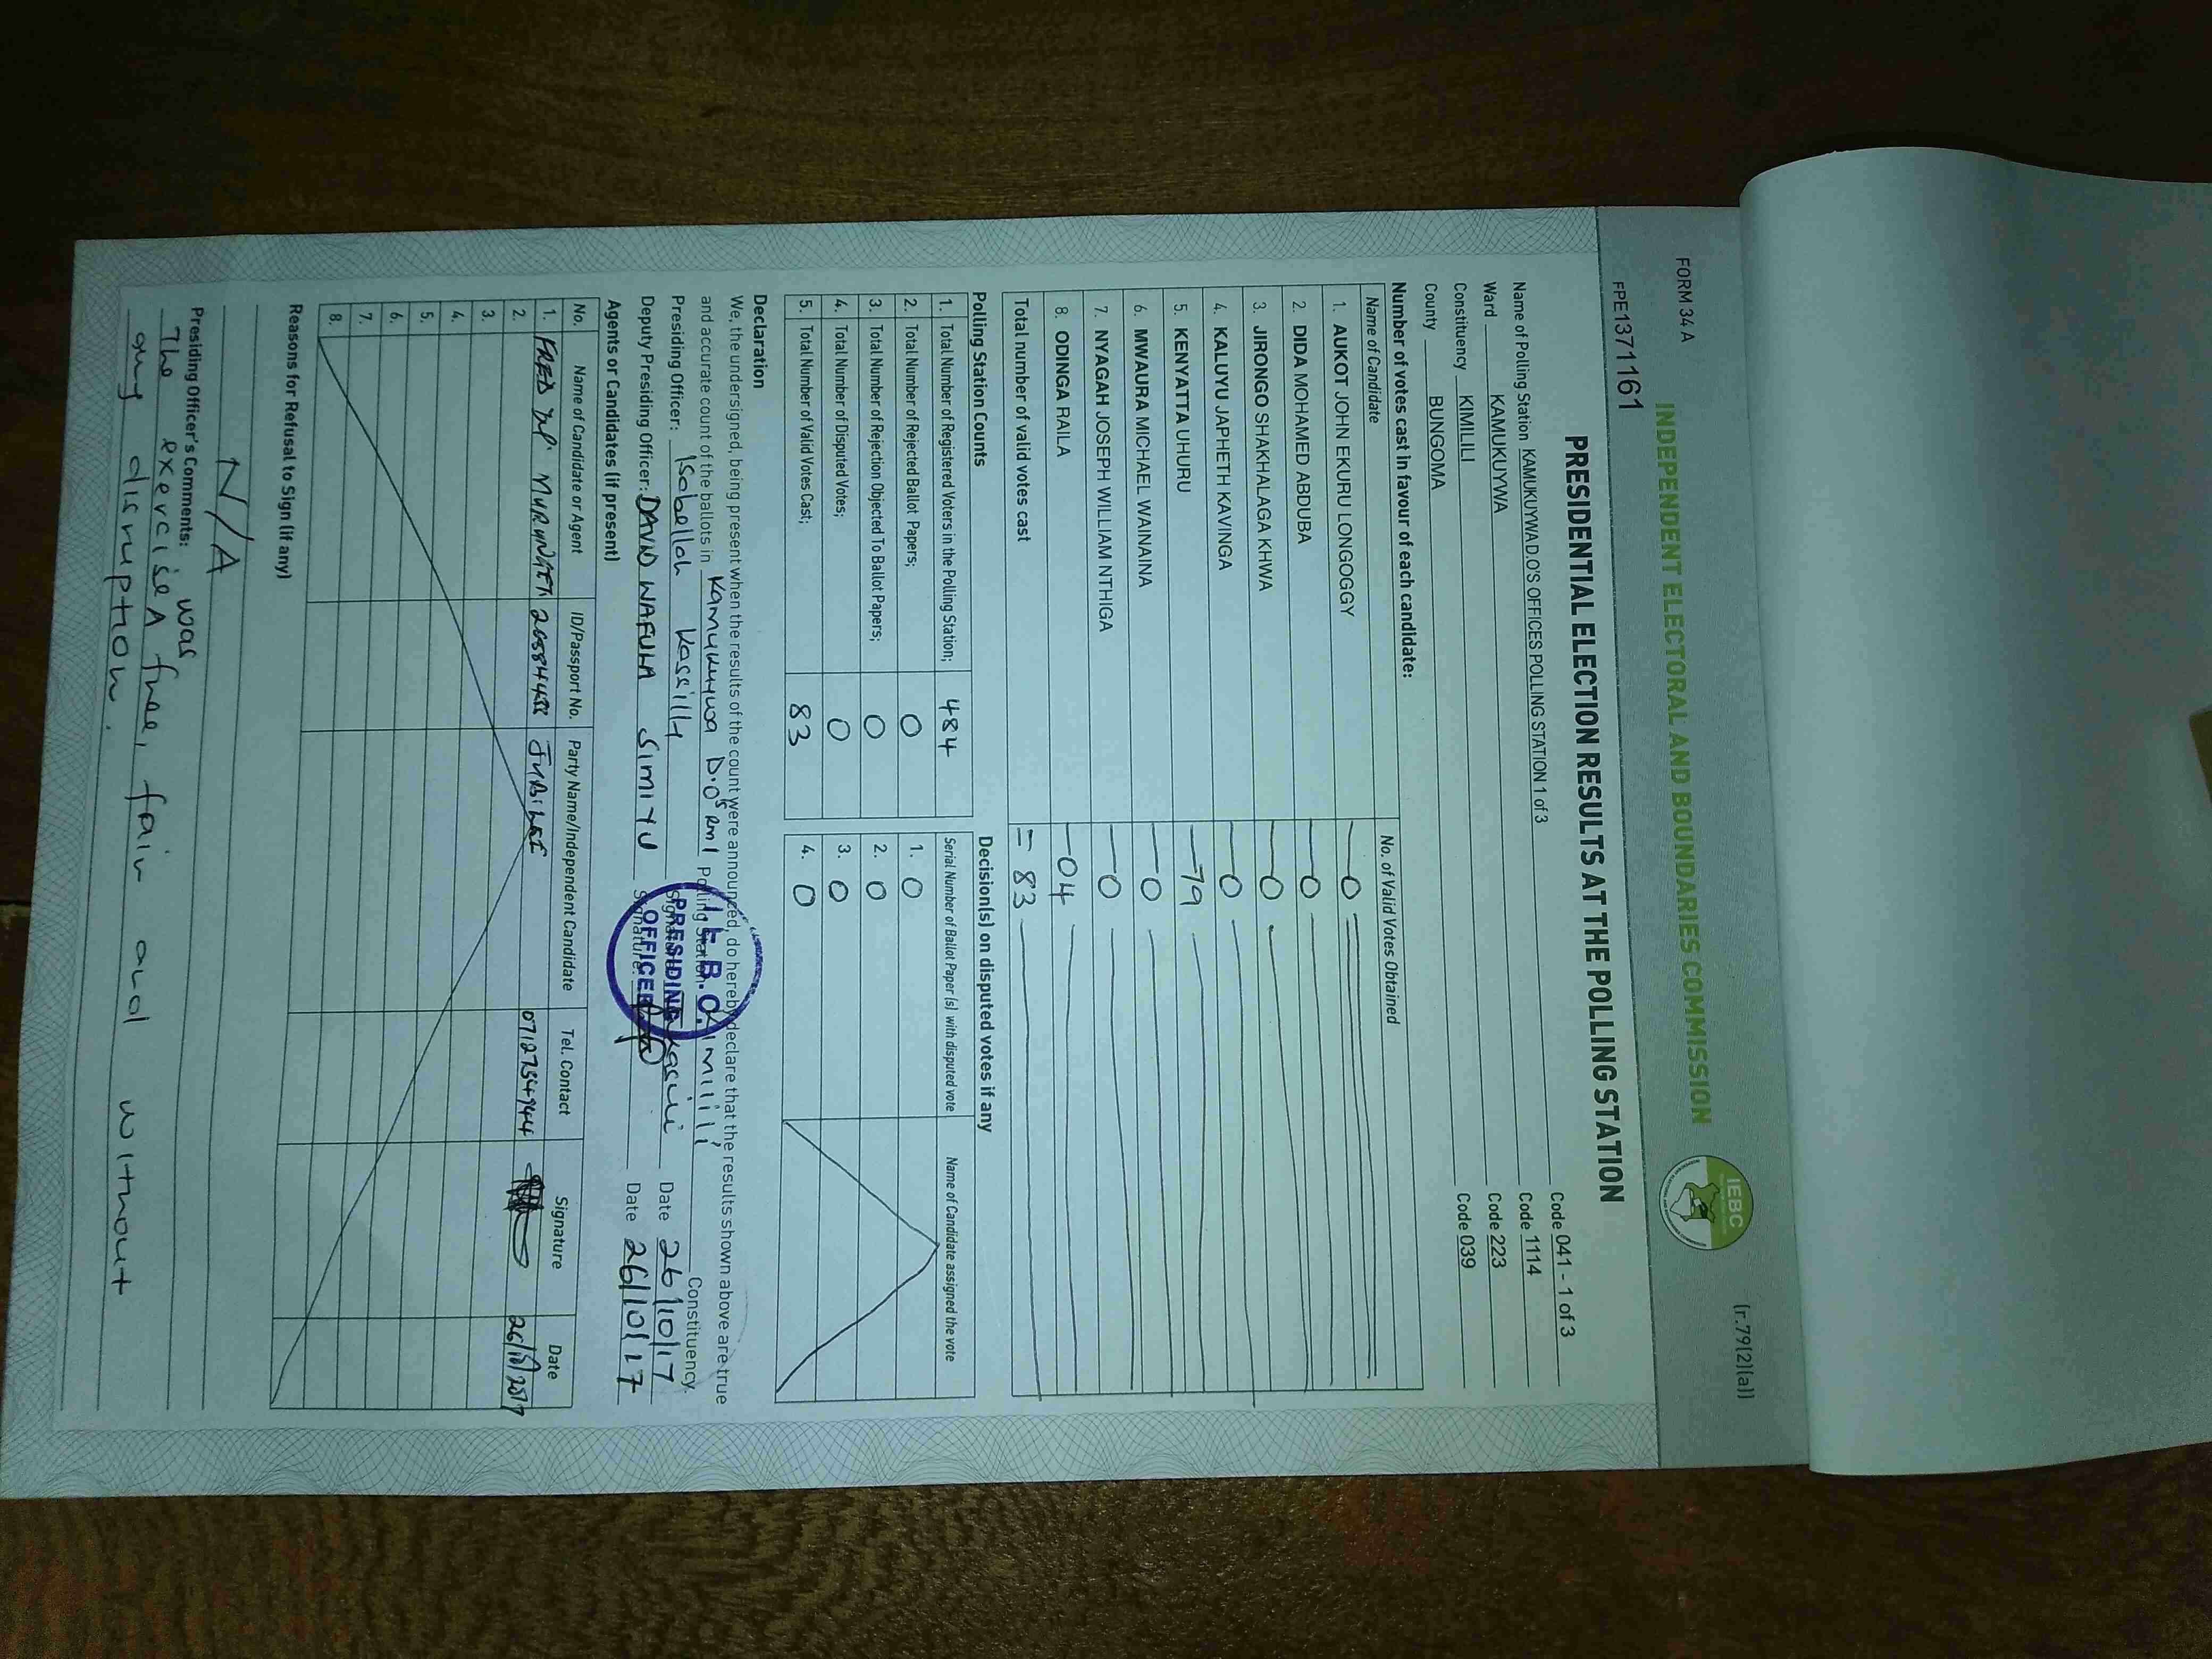 FORM 34 A
(r.79(2)(a))
INDEPENDENT ELECTORAL AND BOUNDARIES COMMISSION
IEBC
FPE1371161
PRESIDENTIAL ELECTION RESULTS AT THE POLLING STATION
Name of Polling Station KAMUKUYWA D.O'S OFFICES POLLING STATION 1 of 3 Code 041 - 1 of 3
Ward KAMUKUYWA Code 1114
Constituency KIMILILI Code 223
County BUNGOMA Code 039
Number of votes cast in favour of each candidate:
Name of Candidate No. of Valid Votes Obtained
1. AUKOT JOHN EKURU LONGOGGY —0
2. DIDA MOHAMED ABDUBA —0
3. JIRONGO SHAKHALAGA KHWA —0
4. KALUYU JAPHETH KAVINGA —0
5. KENYATTA UHURU —79
6. MWAURA MICHAEL WAINAINA —0
7. NYAGAH JOSEPH WILLIAM NTHIGA —0
8. ODINGA RAILA —04
Total number of valid votes cast = 83
Polling Station Counts Decision(s) on disputed votes if any
1. Total Number of Registered Voters in the Polling Station; 484 Serial Number of Ballot Paper (s) with disputed vote Name of Candidate assigned the vote
2. Total Number of Rejected Ballot Papers; 0 1. 0
3. Total Number of Rejection Objected To Ballot Papers; 0 2. 0
4. Total Number of Disputed Votes; 0 3. 0
5. Total Number of Valid Votes Cast; 83 4. 0
Declaration
We, the undersigned, being present when the results of the count were announced, do hereby declare that the results shown above are true
and accurate count of the ballots in Kamukuywa D.O's Rm1 Polling Station Kimilili Constituency.
Presiding Officer: Isabellah Date 26/10/17
Deputy Presiding Officer: DAVID WAFULA SIMIYU Signature: Date 26/10/17
PRESIDING
OFFICER
Agents or Candidates (if present)
No. Name of Candidate or Agent ID/Passport No. Party Name/Independent Candidate Tel. Contact Signature Date
1. FRED JUBILEE 26/10/2017
2.
3.
4.
5.
6.
7.
8.
Reasons for Refusal to Sign (if any)
N/A
Presiding Officer's Comments:
The exercise was free, fair and without
any disruption.